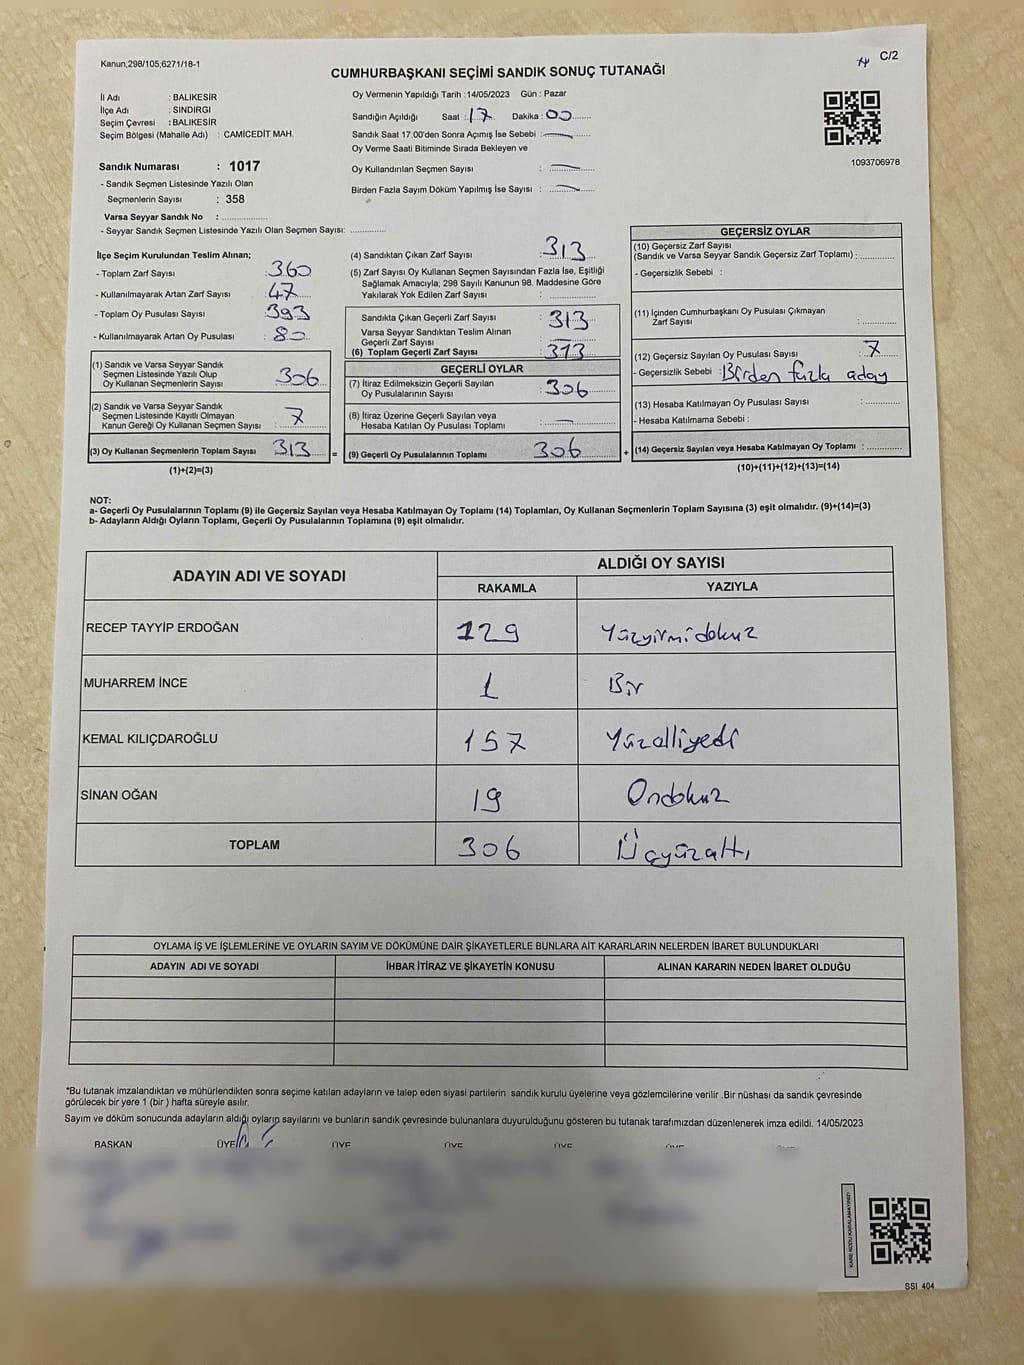 Kanun;298/105;6271/18-1
C/2
CUMHURBAŞKANI SEÇİMİ SANDIK SONUÇ TUTANAĞI
İl Adı : BALIKESİR
İlçe Adı : SINDIRGI
Seçim Çevresi : BALIKESİR
Seçim Bölgesi (Mahalle Adı) : CAMİCEDİT MAH.
Sandık Numarası : 1017
- Sandık Seçmen Listesinde Yazılı Olan
Seçmenlerin Sayısı : 358
Varsa Seyyar Sandık No : ..................
- Seyyar Sandık Seçmen Listesinde Yazılı Olan Seçmen Sayısı: ............
Oy Vermenin Yapıldığı Tarih :14/05/2023 Gün : Pazar
Sandığın Açıldığı Saat :17 Dakika :00
Sandık Saat 17:00'den Sonra Açımış İse Sebebi : —
Oy Verme Saati Bitiminde Sırada Bekleyen ve
Oy Kullandırılan Seçmen Sayısı : —
Birden Fazla Sayım Döküm Yapılmış İse Sayısı : —
1093706978
İlçe Seçim Kurulundan Teslim Alınan;
- Toplam Zarf Sayısı : 360
- Kullanılmayarak Artan Zarf Sayısı : 47
- Toplam Oy Pusulası Sayısı : 393
- Kullanılmayarak Artan Oy Pusulası : 80
(1) Sandık ve Varsa Seyyar Sandık
Seçmen Listesinde Yazılı Olup
Oy Kullanan Seçmenlerin Sayısı : 306
(2) Sandık ve Varsa Seyyar Sandık
Seçmen Listesinde Kayıtlı Olmayan
Kanun Gereği Oy Kullanan Seçmen Sayısı : 7
(3) Oy Kullanan Seçmenlerin Toplam Sayısı 313 =
(1)+(2)=(3)
(4) Sandıktan Çıkan Zarf Sayısı : 313
(5) Zarf Sayısı Oy Kullanan Seçmen Sayısından Fazla İse, Eşitliği
Sağlamak Amacıyla; 298 Sayılı Kanunun 98. Maddesine Göre
Yakılarak Yok Edilen Zarf Sayısı : ............
Sandıkta Çıkan Geçerli Zarf Sayısı : 313
Varsa Seyyar Sandıktan Teslim Alınan
Geçerli Zarf Sayısı : —
(6) Toplam Geçerli Zarf Sayısı : 313
GEÇERLİ OYLAR
(7) İtiraz Edilmeksizin Geçerli Sayılan
Oy Pusulalarının Sayısı : 306
(8) İtiraz Üzerine Geçerli Sayılan veya
Hesaba Katılan Oy Pusulası Toplamı : —
(9) Geçerli Oy Pusulalarının Toplamı 306 +
GEÇERSİZ OYLAR
(10) Geçersiz Zarf Sayısı
(Sandık ve Varsa Seyyar Sandık Geçersiz Zarf Toplamı) : ............
- Geçersizlik Sebebi :
(11) İçinden Cumhurbaşkanı Oy Pusulası Çıkmayan
Zarf Sayısı : ............
(12) Geçersiz Sayılan Oy Pusulası Sayısı : 7
- Geçersizlik Sebebi : Birden fazla aday
(13) Hesaba Katılmayan Oy Pusulası Sayısı : ............
- Hesaba Katılmama Sebebi :
(14) Geçersiz Sayılan veya Hesaba Katılmayan Oy Toplamı : ............
(10)+(11)+(12)+(13)=(14)
NOT:
a- Geçerli Oy Pusulalarının Toplamı (9) ile Geçersiz Sayılan veya Hesaba Katılmayan Oy Toplamı (14) Toplamları, Oy Kullanan Seçmenlerin Toplam Sayısına (3) eşit olmalıdır. (9)+(14)=(3)
b- Adayların Aldığı Oyların Toplamı, Geçerli Oy Pusulalarının Toplamına (9) eşit olmalıdır.
ADAYIN ADI VE SOYADI
ALDIĞI OY SAYISI
RAKAMLA YAZIYLA
RECEP TAYYİP ERDOĞAN 129 Yüzyirmidokuz
MUHARREM İNCE 1 Bir
KEMAL KILIÇDAROĞLU 157 Yüzelliyedi
SİNAN OĞAN 19 Ondokuz
TOPLAM 306 Üçyüzaltı
OYLAMA İŞ VE İŞLEMLERİNE VE OYLARIN SAYIM VE DÖKÜMÜNE DAİR ŞİKAYETLERLE BUNLARA AİT KARARLARIN NELERDEN İBARET BULUNDUKLARI
ADAYIN ADI VE SOYADI İHBAR İTİRAZ VE ŞİKAYETİN KONUSU ALINAN KARARIN NEDEN İBARET OLDUĞU
*Bu tutanak imzalandıktan ve mühürlendikten sonra seçime katılan adayların ve talep eden siyasi partilerin sandık kurulu üyelerine veya gözlemcilerine verilir .Bir nüshası da sandık çevresinde
görülecek bir yere 1 (bir ) hafta süreyle asılır.
Sayım ve döküm sonucunda adayların aldığı oyların sayılarını ve bunların sandık çevresinde bulunanlara duyurulduğunu gösteren bu tutanak tarafımızdan düzenlenerek imza edildi. 14/05/2023
BAŞKAN ÜYE ÜYE ÜYE ÜYE
KARE KODU KARALAMAYINIZ!
SSI_404